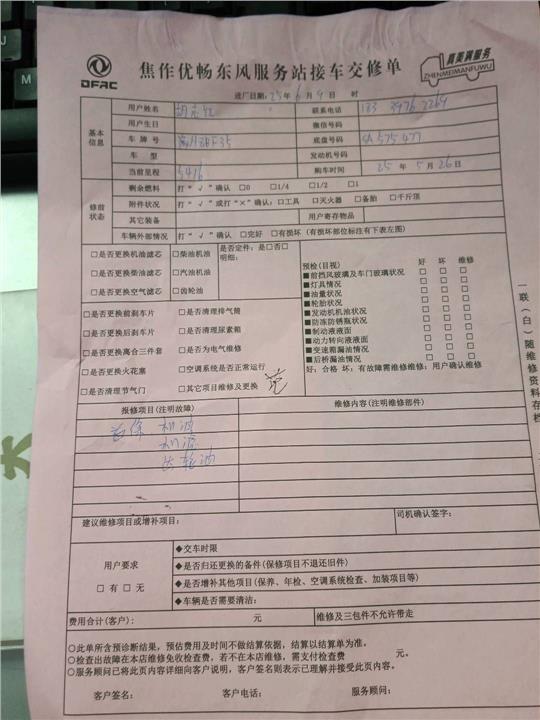 DFAC
焦作优畅东风服务站接车交修单
真美满服务
ZHENMEIMANFUWU
进厂日期：25年6月9日 时
基本信息
用户姓名 联系电话
用户生日 微信号码
车牌号 底盘号码 SA575477
车型 发动机号码
当前里程 5416 购车时间 25年5月26日
修前状态
剩余燃料 打“√”确认 □0 □1/4 □1/2 □1
附件状况 打“√”或打“×”确认：□工具 □灭火器 □备胎 □千斤顶
其它装备 用户寄存物品
车辆外部情况 打“√”确认 □完好 □有损坏（有损坏部位标注有下表左图）
□是否更换机油滤芯 □柴油机油 是否定件：是□否□
□是否更换柴油滤芯 □汽油机油 明细：
□是否更换空气滤芯 □齿轮油
□是否更换前刹车片 □是否清理排气筒
□是否更换后刹车片 □是否清理尿素箱
□是否更换离合三件套 □是否为电气维修
□是否更换火花塞 □空调系统是否正常运行
□是否清理节气门 □其它项目维修及更换
预检（目视） 好 坏 维修
■前挡风玻璃及车门玻璃状况 □ □ □
■灯具情况 □ □ □
■油量状况 □ □ □
■轮胎状况 □ □ □
■发动机机油状况 □ □ □
■防冻防锈瓶状况 □ □ □
■制动液液面 □ □ □
■动力转向液液面 □ □ □
■变速箱漏油情况 □ □ □
■后桥漏油情况 □ □ □
好：合格 坏：有故障需维修维修：用户确认维修
一联（白）随维修资料存档
报修项目（注明故障） 维修内容（注明维修部件）
首保 机油
机滤
齿轮油
建议维修项目或增补项目： 司机确认签字：
用户要求
□有□无
◆交车时限
◆是否归还更换的备件（保修项目不退还旧件）
◆是否增补其他项目（保养、年检、空调系统检查、加装项目等）
◆车辆是否需要清洁：
费用合计（客户）： 元 维修及三包件不允许带走
○此单所含预诊断结果，预估费用及时间不做结算依据，结算以结算单为准。
○检查出故障在本店维修免收检查费，若不在本店维修，需支付检查费 元。
○服务顾问已将此页内容详细向客户说明，客户签名则表示已理解并接受此页内容。
客户签名： 客户电话： 服务顾问：